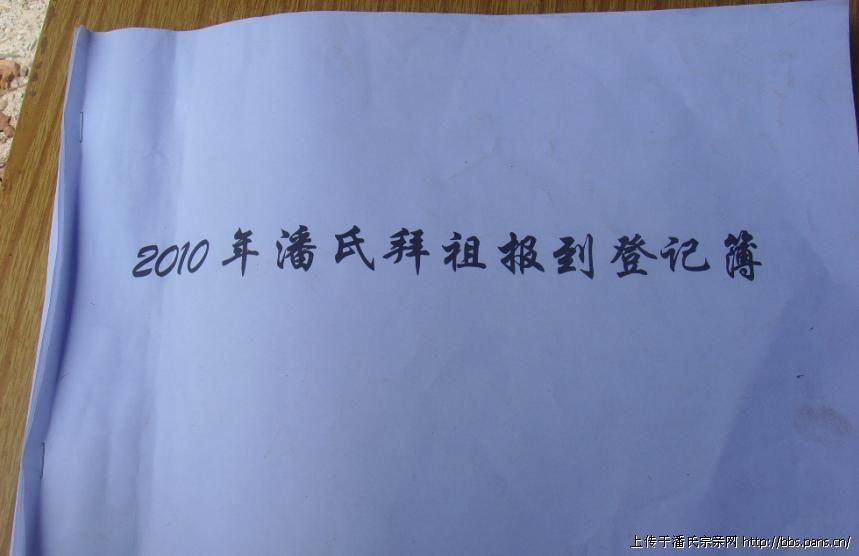 2010年潘氏拜祖报到登记簿
上传于潘氏宗亲网 http://bbs.pans.cn/